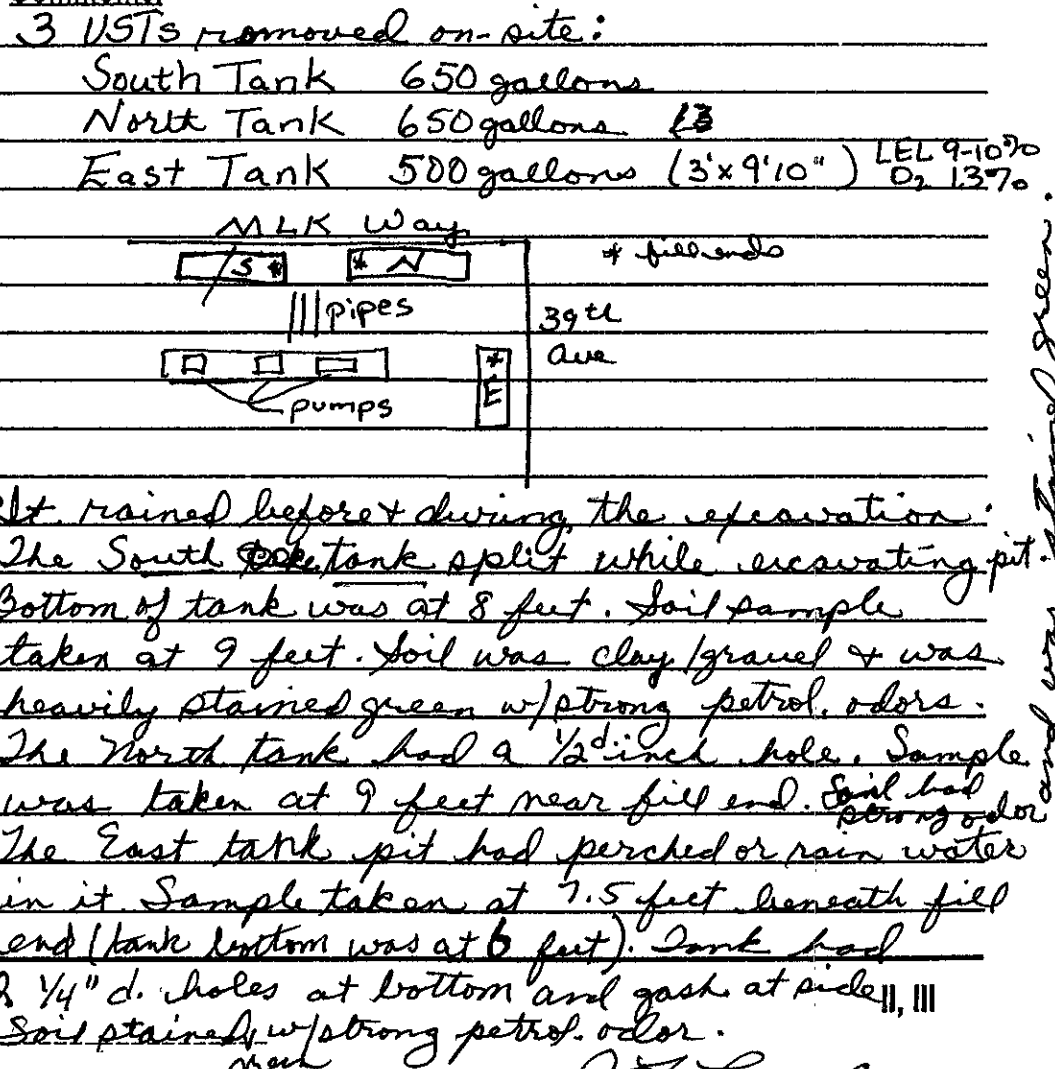 Comments:
3 USTs removed on-site:
South Tank 650 gallons
North Tank 650 gallons
East Tank 500 gallons (3'x9'10") LEL 9-10%
O2 13%
MLK Way
S * * N * fill ends
||| pipes 39th
Ave
* E
pumps
It rained before + during the excavation.
The South tank split while excavating pit.
Bottom of tank was at 8 feet. Soil sample
taken at 9 feet. Soil was clay/gravel & was
heavily stained green w/strong petrol. odors.
The North tank had a 1/2 d inch hole. Sample
was taken at 9 feet near fill end. Soil had
strong odor and was stained green.
The East tank pit had perched or rain water
in it. Sample taken at 7.5 feet beneath fill
end (tank bottom was at 6 feet). Tank had
2 1/4" d. holes at bottom and gash at side
II, III
Soil stained w/strong petrol. odor.